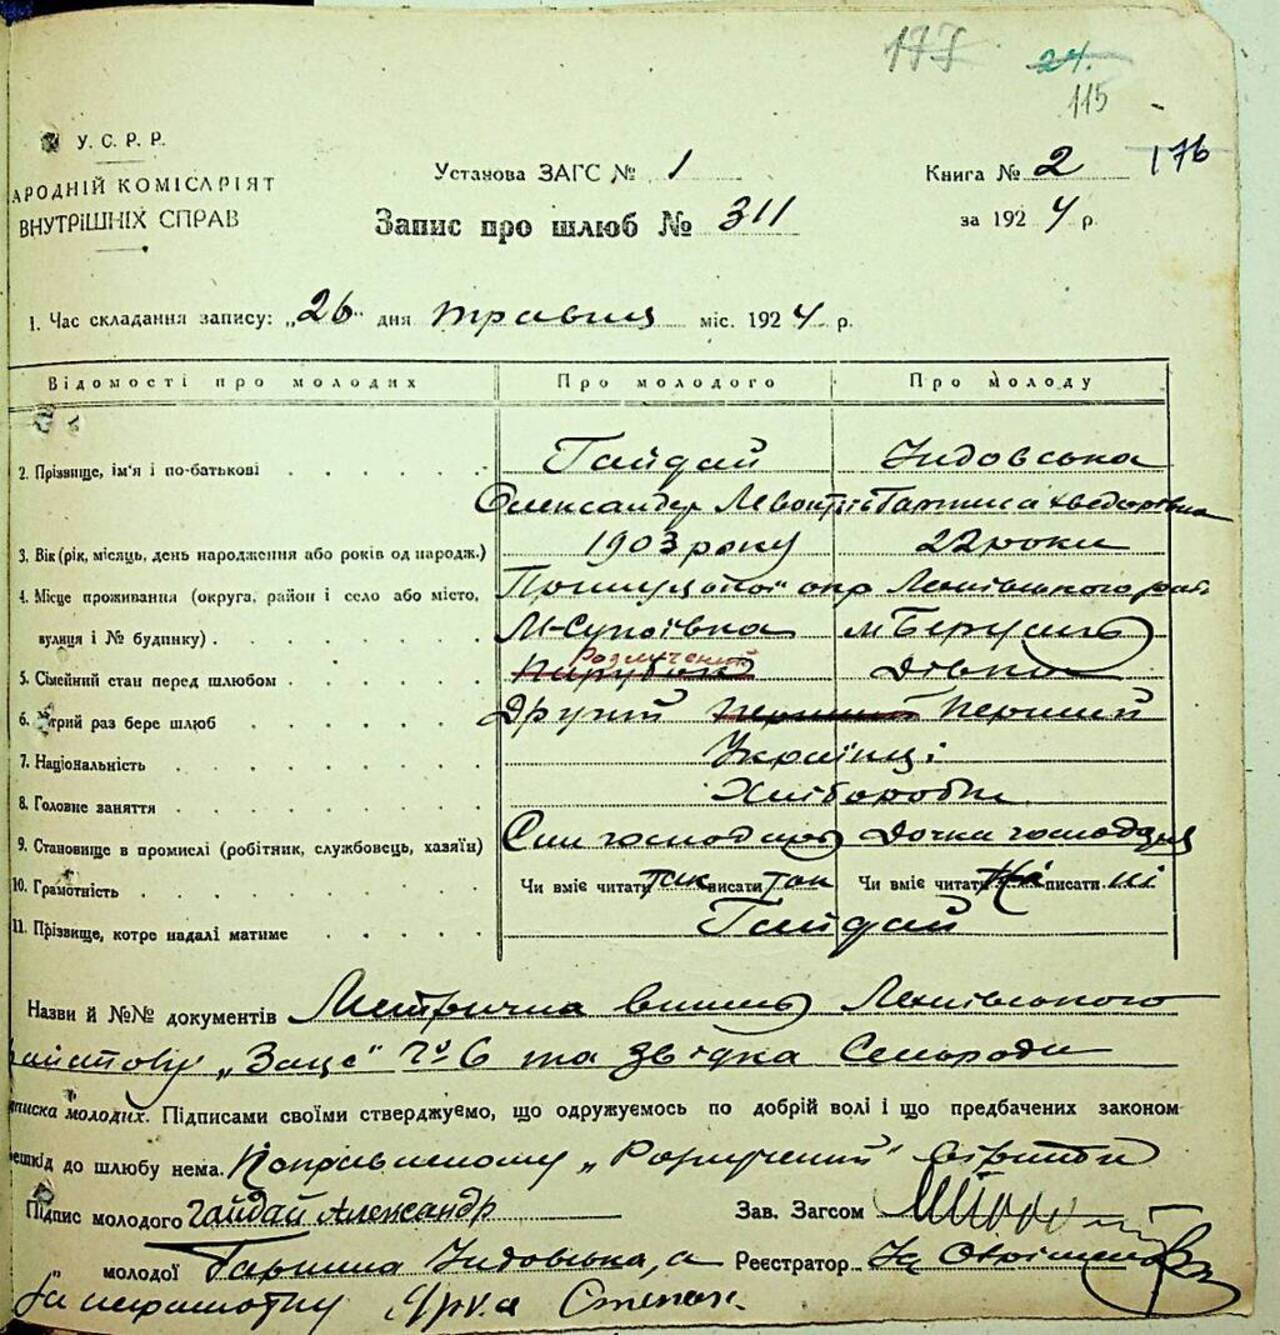 177 24.
115
У. С. Р. Р. 176
АРОДНІЙ КОМІСАРІЯТ Установа ЗАГС № 1 Книга № 2
ВНУТРІШНІХ СПРАВ Запис про шлюб № 311 за 1924 р.
1. Час складання запису: „26" дня травня міс. 1924 р.
Відомості про молодих Про молодого Про молоду
2. Прізвище, ім'я і по-батькові Гайдай Чидовська
Олександер Левонтієв Гапина Хведорівна
3. Вік (рік, місяць, день народження або років од народж.) 1903 року 22 роки
4. Місце проживання (округа, район і село або місто, Прилуцької окр
вулиця і № будинку) М-Супоївка м Березань
5. Сімейний стан перед шлюбом Парубок Розлучений Дівка
6. Котрий раз бере шлюб Другий Перший Перший
7. Національність Українці
8. Головне заняття Хлібороби
9. Становище в промислі (робітник, службовець, хазяїн) Син господаря Дочка господаря
10. Грамотність Чи вміє читати так писати так Чи вміє читати ні писати ні
11. Прізвище, котре надалі матиме Гайдай
Назви й №№ документів Метрична випись
„Загс" № 6 та звідка Сельради
писка молодих. Підписами своїми стверджуємо, що одружуємось по добрій волі і що предбачених законом
ешкід до шлюбу нема. Поправленому „Розлучений" вірити
Підпис молодого Гайдай Александр Зав. Загсом
молодої Гапина Чидовська, а Реєстратор
за неграмотну Степан.